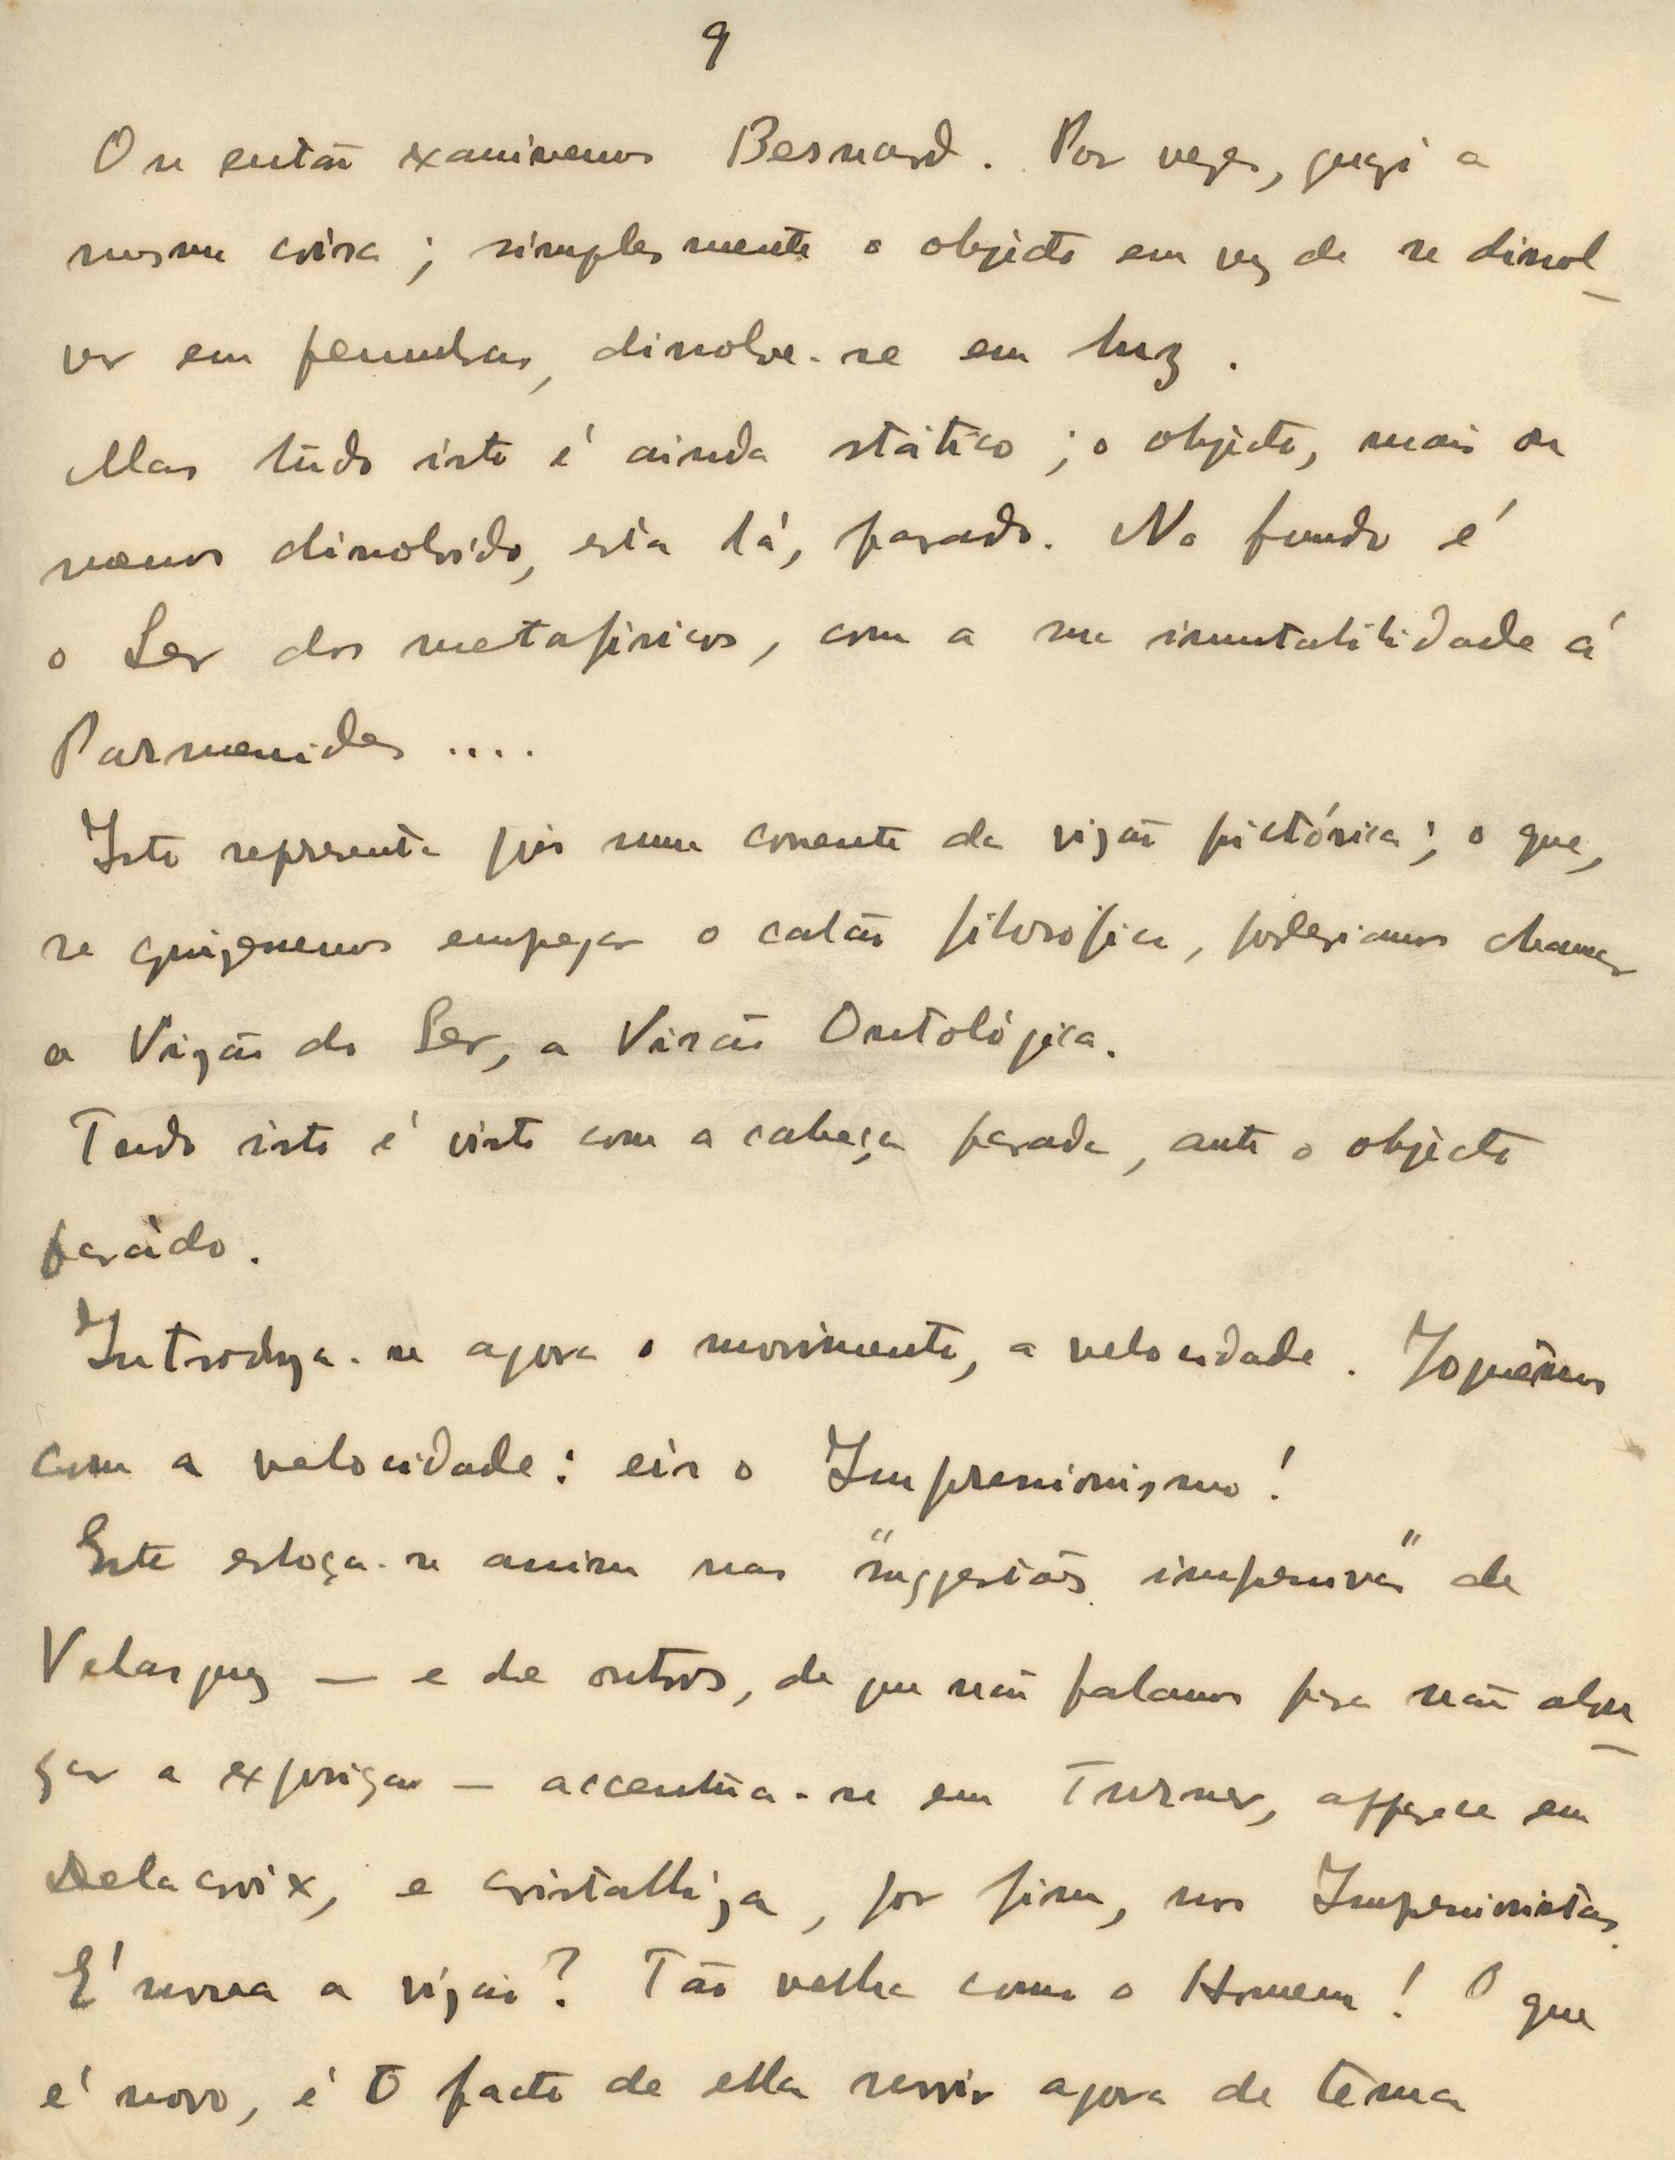 9
Ou então examinemos Besnard. Por vezes, quasi a
mesma coisa; simplesmente o objecto em vez de se dissol-
ver em penumbras, dissolve-se em luz.
Mas tudo isto é ainda stático; o objecto, mais ou
menos dissolvido, esta lá, parado. No fundo é
o Ser dos metafisicos, com a sua imutabilidade á
Parmenides ....
Isto representa pois uma corrente da vizão pictórica; o que,
se quizessemos empregar o calão filosofico, poderiamos chamar
a Vizão do Ser, a Visão Ontológica.
Tudo isto é visto com a cabeça parada, ante o objecto
parádo.
Introduza-se agora o movimento, a velocidade. Joguêmos
com a velocidade: eis o Impressionismo!
Este esboça-se assim nas "suggestões impressivas" de
Velasquez — e de outros, de que não falamos para não alon-
gar a exposiçao — accentúa-se em Turner, apparece em
Delacroix, e cristalliza, por fim, nos Impressionistas.
E' nova a vizão? Tão velha como o Homem! O que
é novo, é o facto de ella servir agora de tema